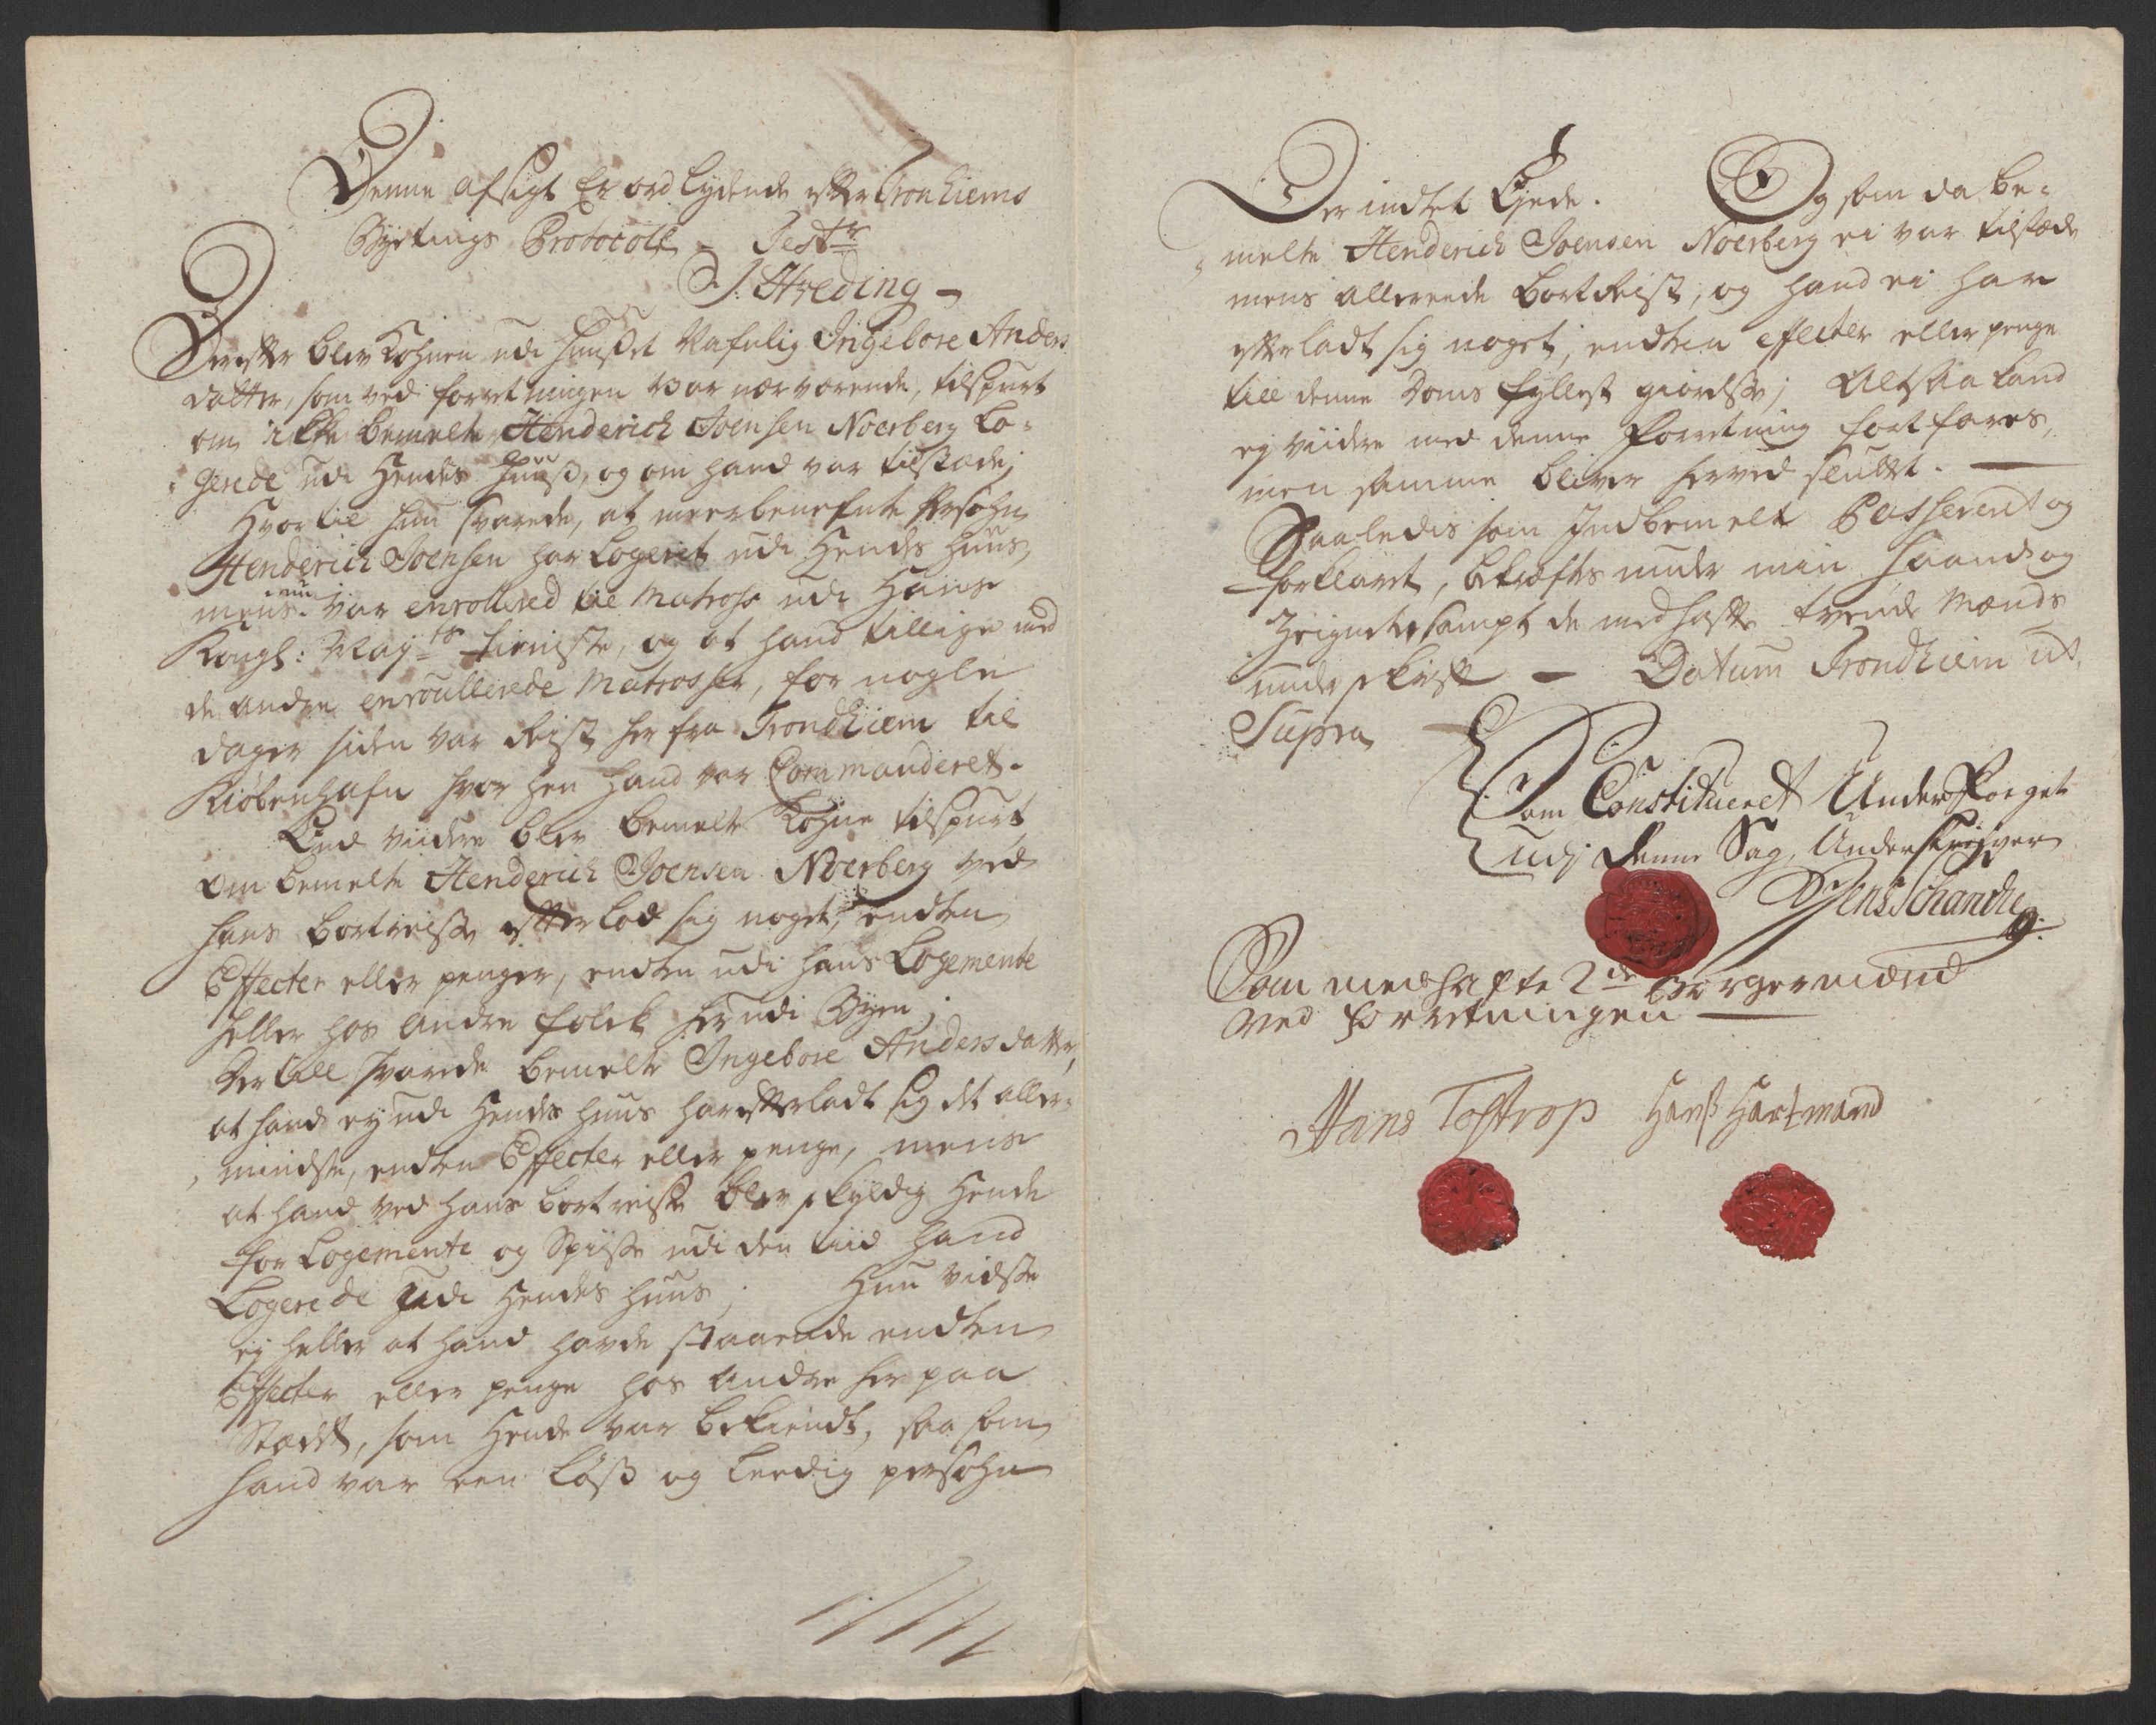 Denne afsigt Er ord lydende efter Tronhiems
Byetings Protocoll - Test:r
S. Hveding -
Derefter blev Kohnen udi Huußet Nafnlig Ingebore Anders
datter, som ved forretningen var nærværende, tilspurt
om icke bemelte Henderich Joensen Noerberg Lo-
gerede udi Hendes Huuß, og om hand var tilstæde;
Hvortil hun svarede, at meerbenefnte Persohn
Henderich Joensen har Logeret udi Hendes Huus,
mens nu var enrollered til Matross udi Hans
Kongl: May:ts tieniste, og at hand tillige med
de andre enroullerede Matrosser, for nogle
dager siden var Reist her fra Trondhiem til
Kiöbenhafn hvor hen hand var Commanderet.
End viidere blev bemelte Kohne tilspurt
om bemelte Henderich Joensen Noerberg ved
hans bortreise efterlod sig noget, endten
Effecter eller penger, endten udi hans Logemente
heller hos andre folck her udi Byen;
der till svarede bemelte Ingebore Andersdatter,
at hand ey udi Hendes huus har efterladt sig det aller-
mindste, endten Effecter eller penge, mens
at hand ved hans bortreise blev skyldig Hende
for Logemente og Spiise udi den tiid hand
Logerede udi Hendes huus; Hun vidste
ey heller at hand hafde staaende endten
Effecter eller penge hos andre her paa
Stædet, som Hende var bekiendt, saa som
hand var een Löß og Leedig persohn
Der indtet Eyede. Og som da be-
melte Henderich Joensen Noerberg ei var tilstæde
mens allereede bortReist, og hand ei har
efterladt sig noget, endten effecter eller penge
till denne Doms fyllest giörelse; Altsaa kand
ey viidere med denne Forretning fortfares,
men samme bliver herved sluttet.
Saaledis som Indbemelt Passeret og
forklaret, bekræftes under min Haand og
Zeignete sampt de med hafte tvende Mænds
underskrift - Datum Trondhiem ut
Supra
Som Constitueret UnderFoget
udj denne Sag, Underskrifver
Jens Schancke
Som medhafte 2de Borgermænd
ved forretningen
Hans Toftrop Hanß Hartmand